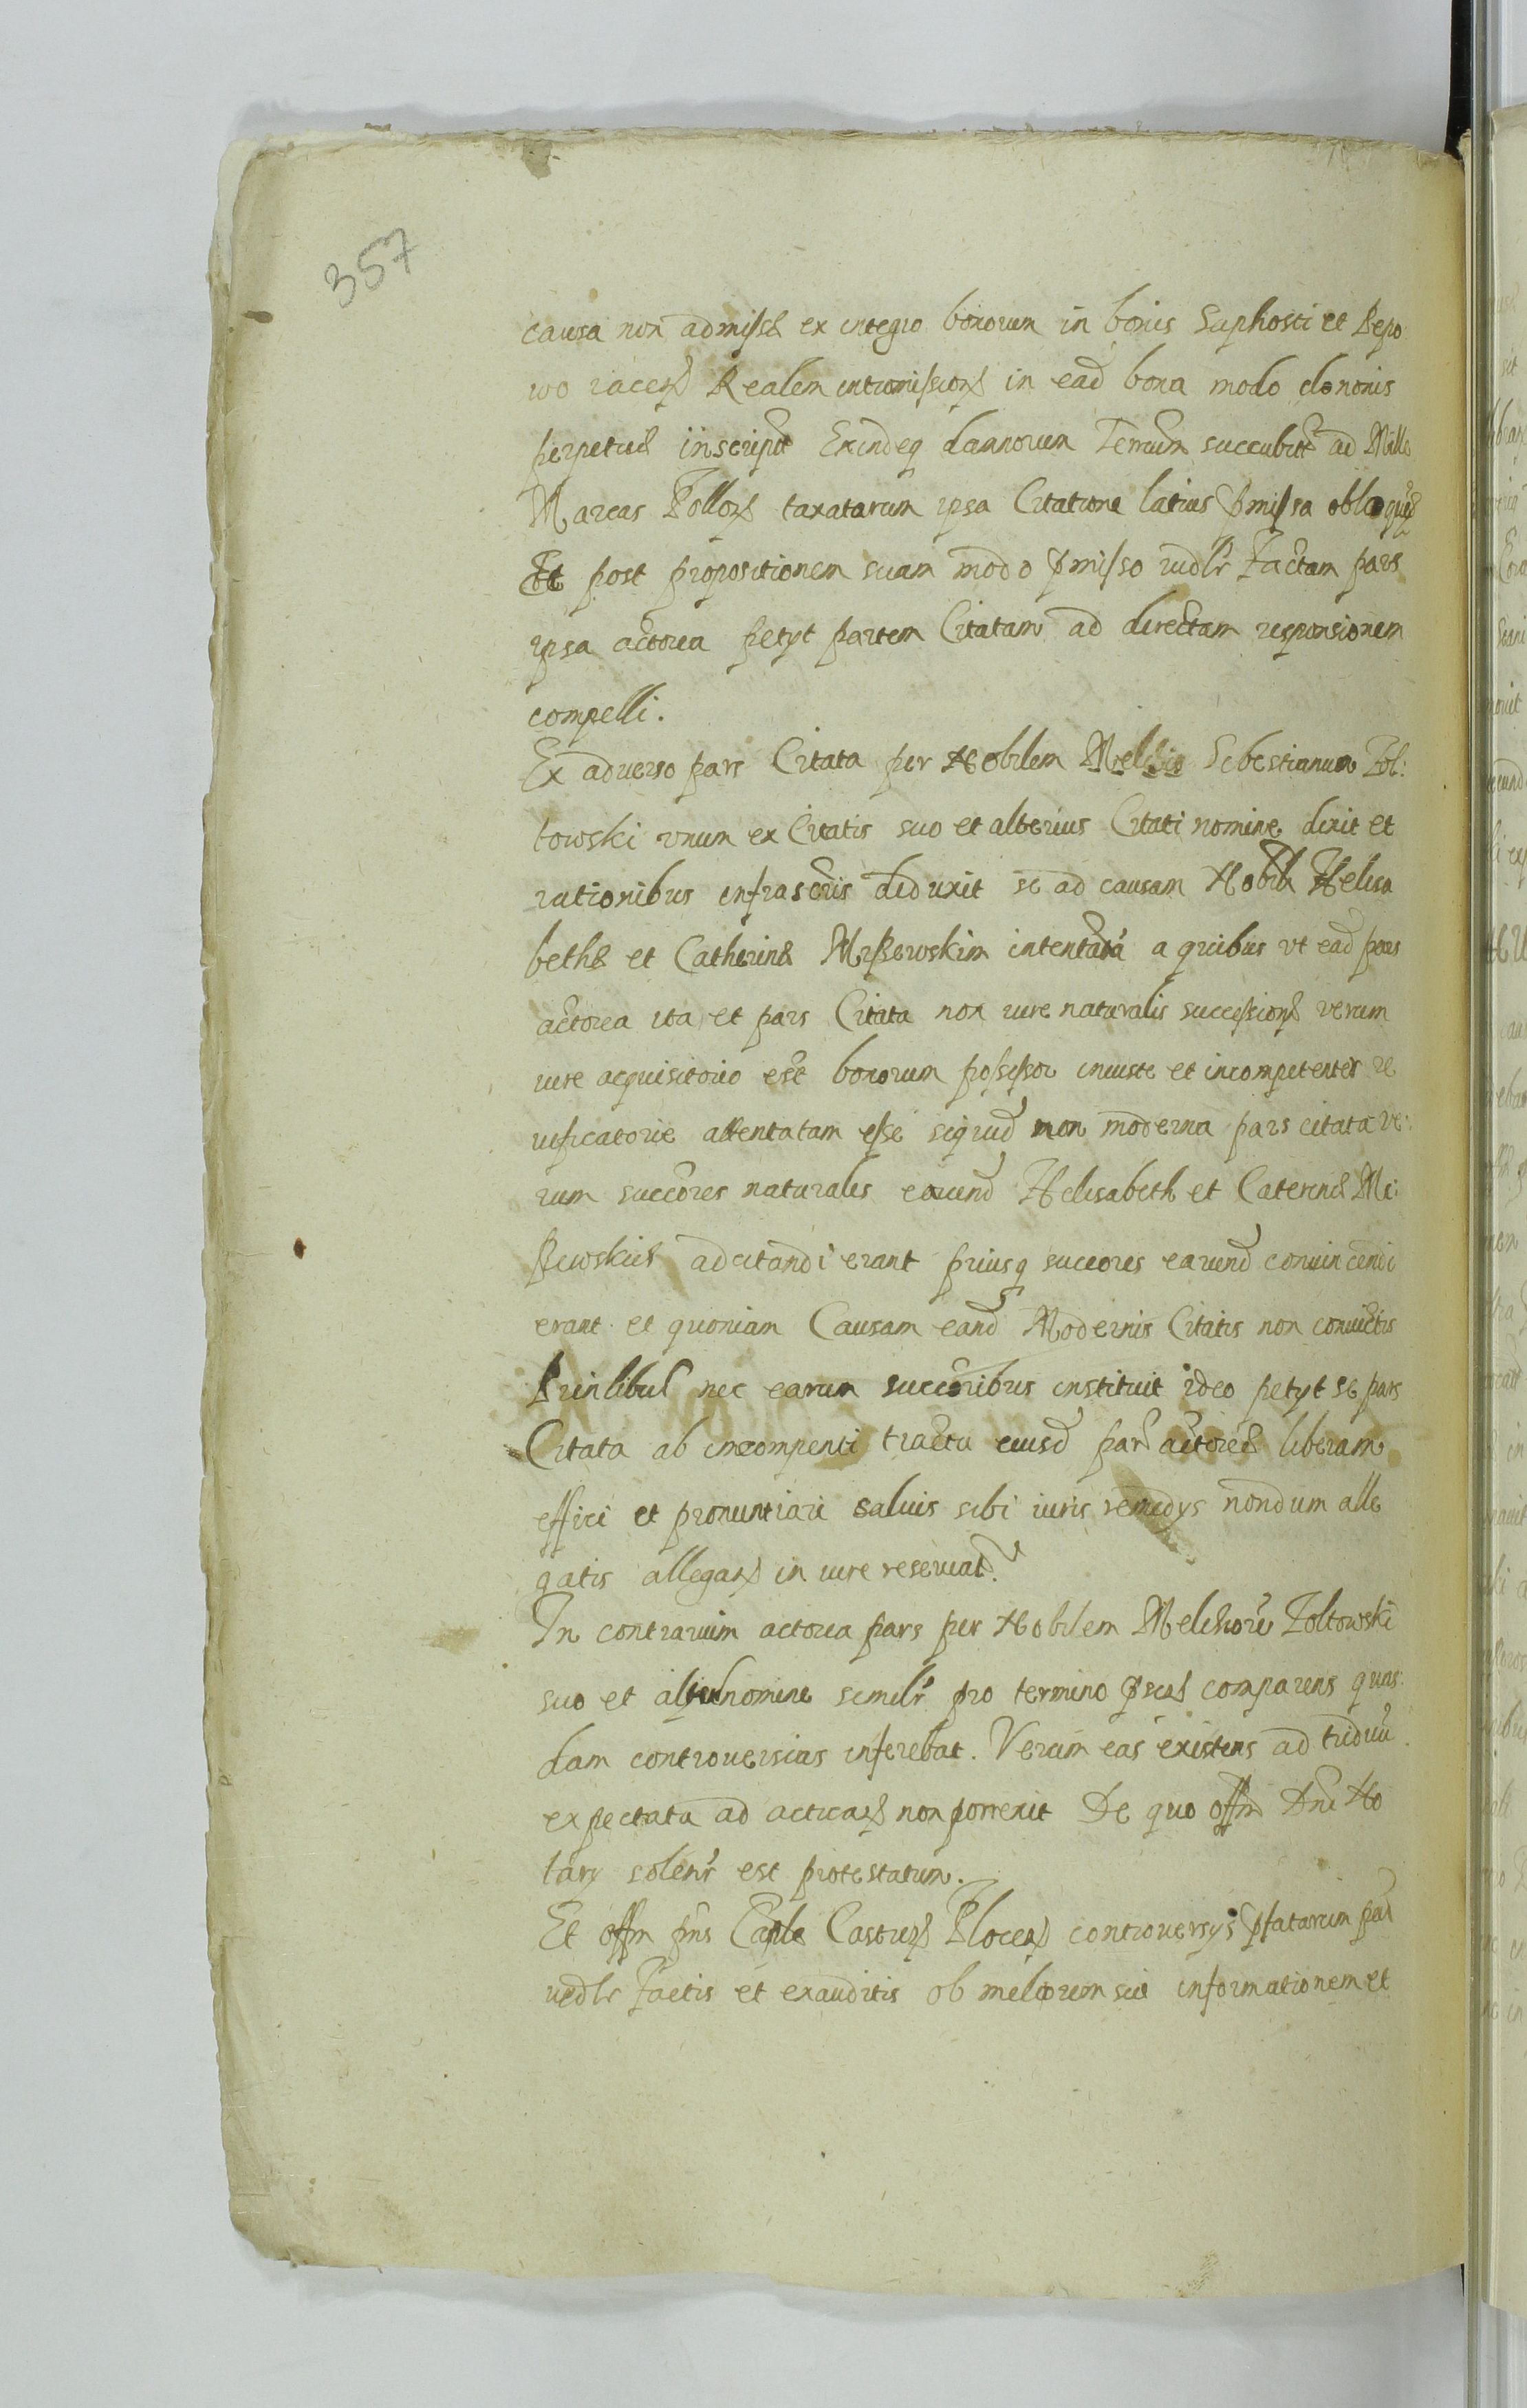 357
causa non admissa ex integro bonorum in bonis Suphosti et Bepo
wo iacen Realem intromission in ead bona modo dononis
perpetuae inscript Exindeq damnorum Terrarum succubit ad Mille
Marcas Pollon taxatarum ipsa Citatione latius pmissa obloquen
Et post propositionem suam modo pmisso iudlr factam pars
ipsa actorea petyt partem Citatam ad directam responsionem
compelli.
Ex aduerso pars Citata per Nobilem Melchio Sebestianum Zol:
towski vnum ex Citatis suo et alterius Citati nomine dixit et
rationibus infrascris deduxit se ad causam Nobil Helisa
bethae et Catherinae Mißewskim intentata a quibus vt ead pars
actorea ita et pars Citata non iure naturalis succession verum
iure acquisitorio est bonorum possessor iniuste et incompetenter re
uificatorie attentatam esse siquid non moderna pars citata ve:
rum succores naturales earund Helisabeth et Caterinae Mi
ßewskich adcitandi erant priusq succores earund conuincendi
erant et quoniam Causam eand Modernis Citatis non conuictis
Prinlibus nec earum succoribus instituit ideo petyt se pars
Citata ab incompenti tractu eiusd par actoreae liberam
effici et pronuntiari saluis sibi iuris remedys nondum alle
gatis allegan in iure reseruat.
In contrarium actorea pars per Nobilem Melchiore Zoltowski
suo et nomine similr pro termino comparens quas
dam controuersias inferebat. Verum eas existens ad triduu
expectata ad actican non porrexit De quo offm Dni No
tary solenr est protestatum.
Et offm pns Caple Castren Plocen controuersys pfatarum par
iudlr factis et exauditis ob meliorem sui informationem et